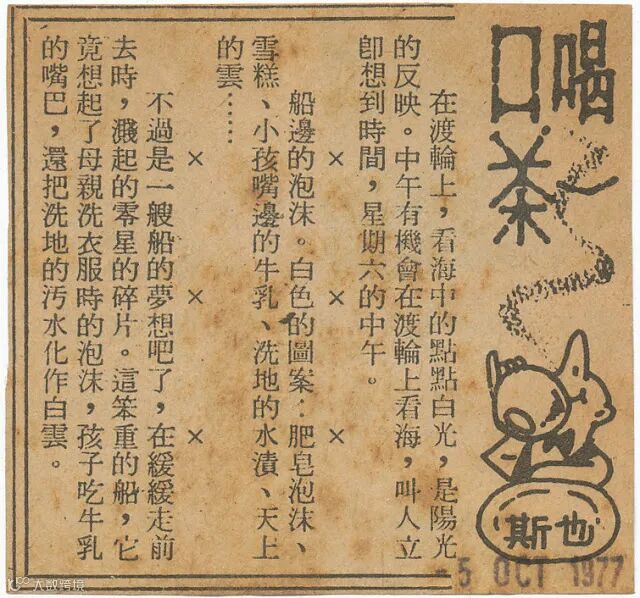 喝
口茶
也斯
在渡輪上，看海中的點點白光，是陽光
的反映。中午有機會在渡輪上看海，叫人立
卽想到時間，星期六的中午。
× × ×
船邊的泡沫。白色的圖案：肥皂泡沫、
雪糕、小孩嘴邊的牛乳、洗地的水漬、天上
的雲……
× × ×
不過是一艘船的夢想吧了，在緩緩走前
去時，濺起的零星的碎片。這笨重的船，它
竟想起了母親洗衣服時的泡沫，孩子吃牛乳
的嘴巴，還把洗地的汚水化作白雲。
-5 OCT 1977
大数跨境